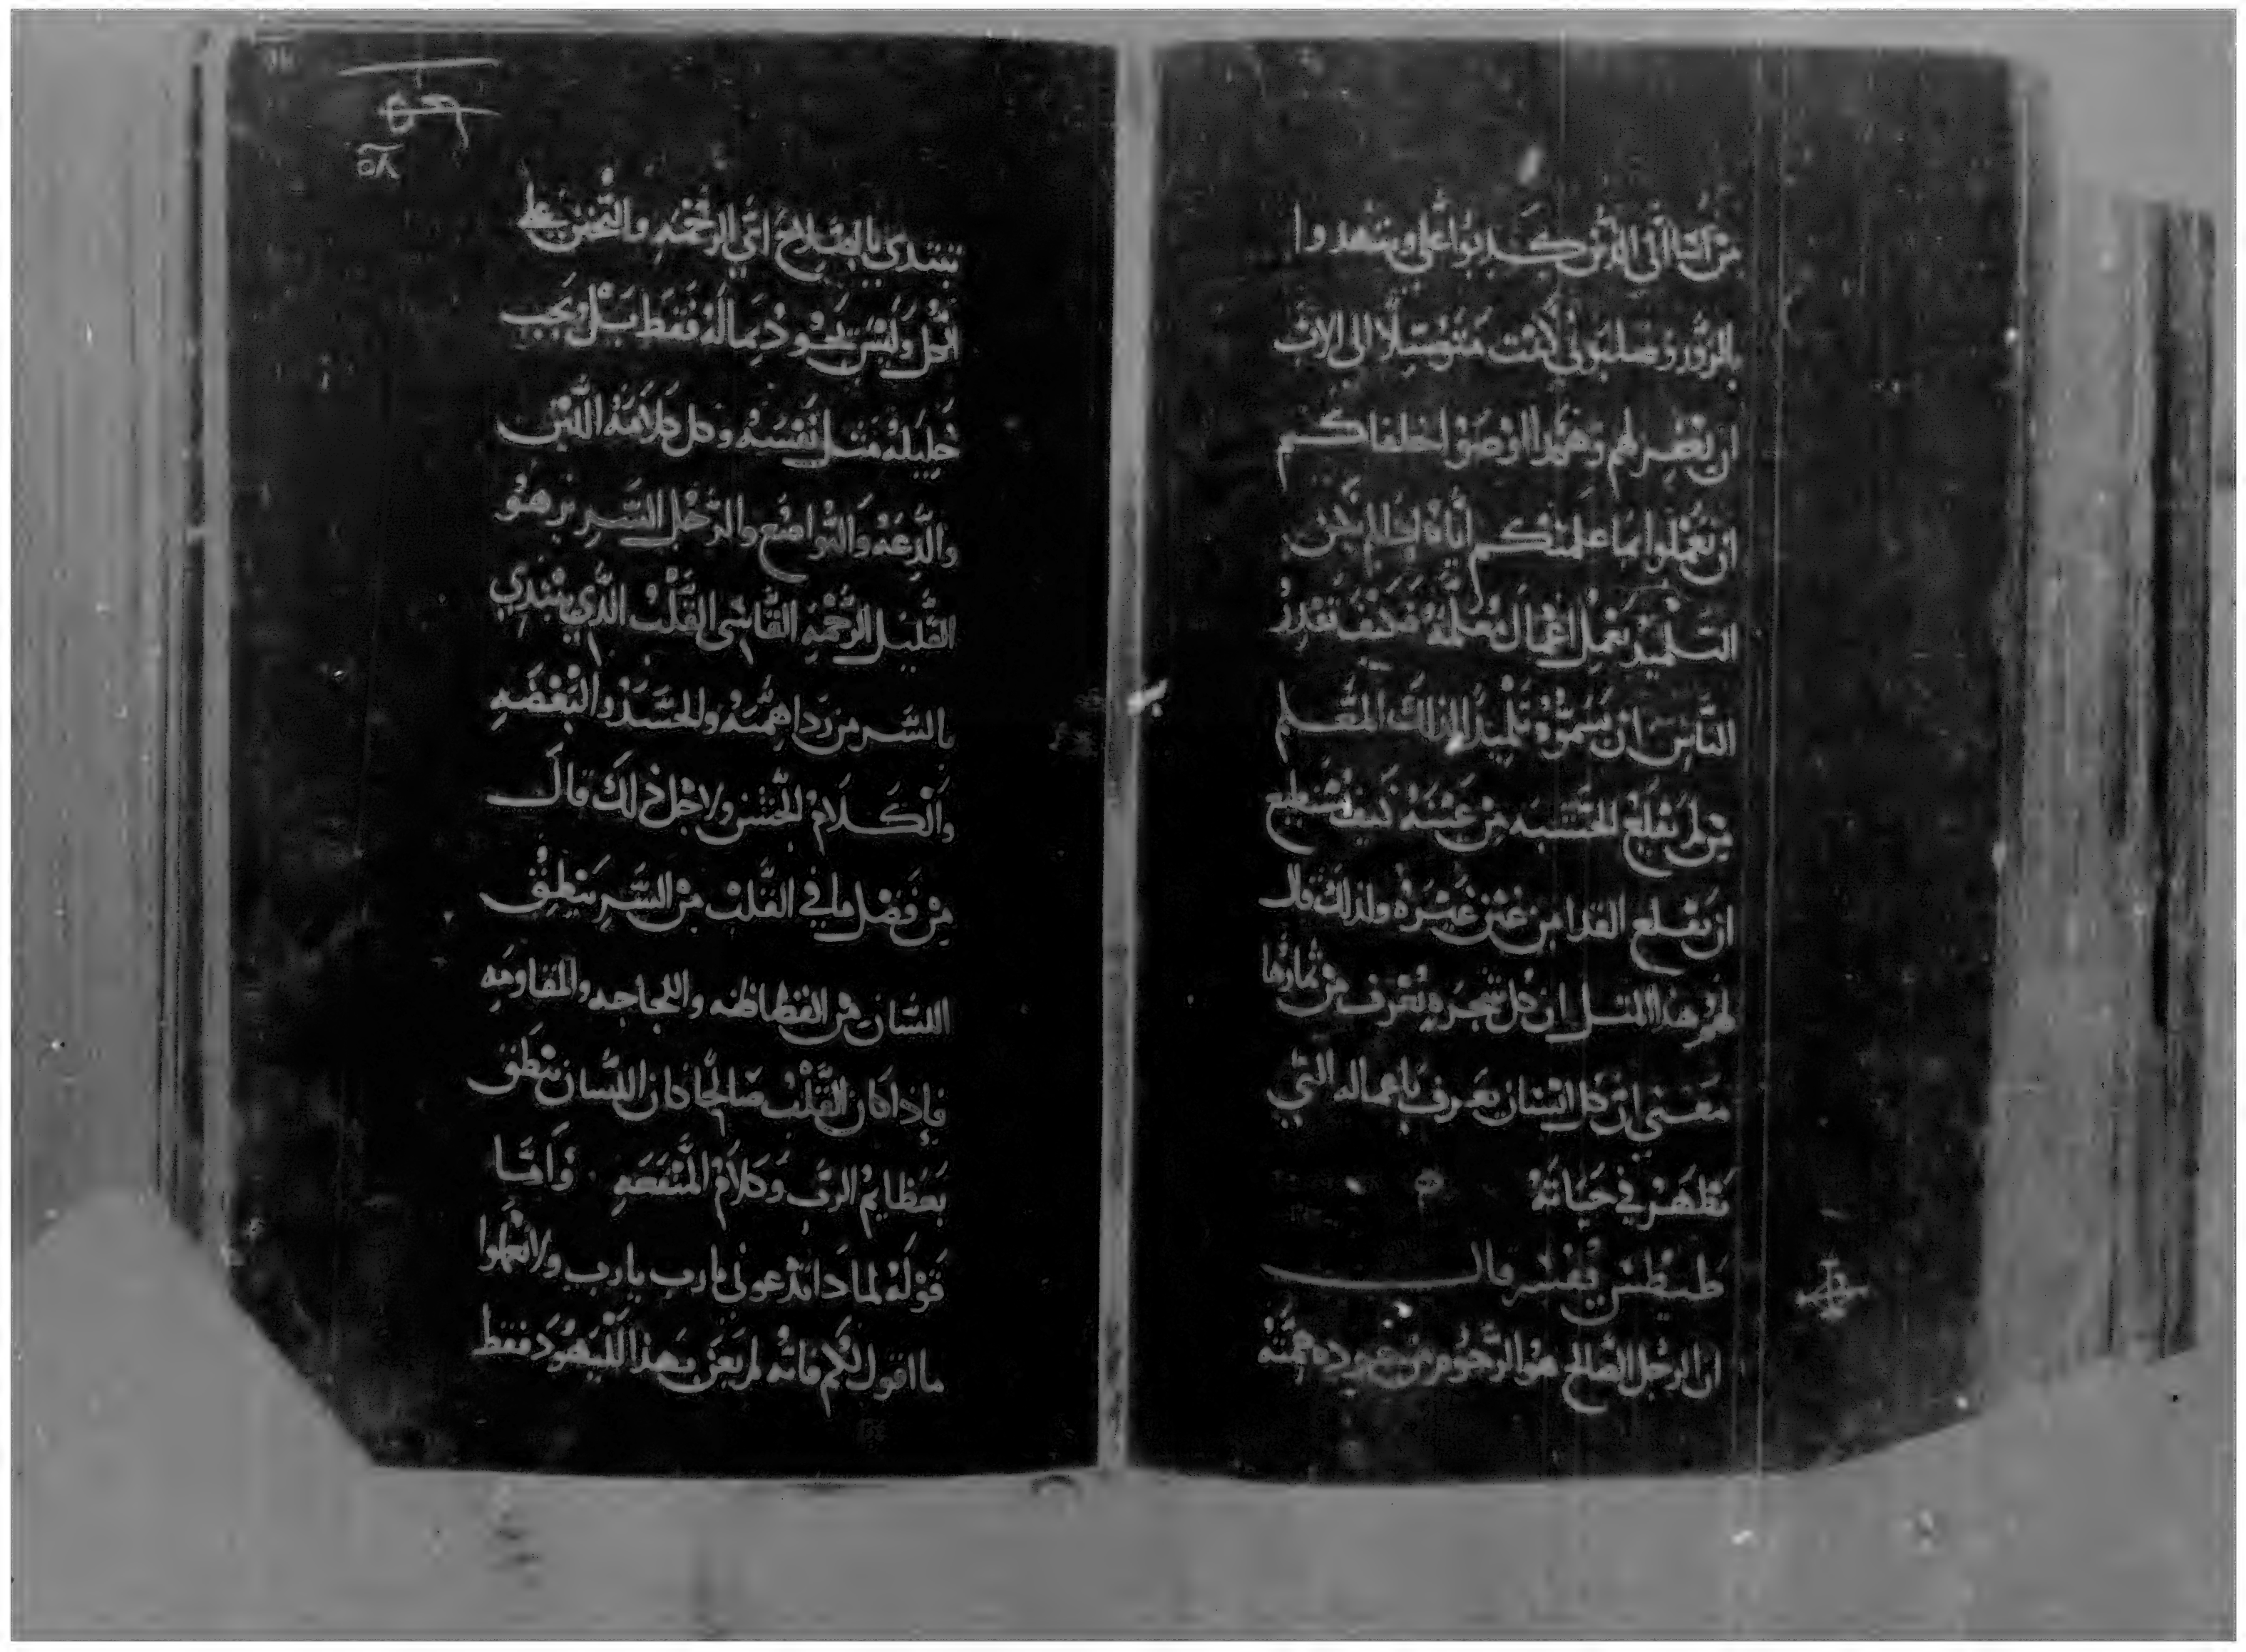 من اسا الي الدين كدبوا علي وشهدوا
بالزور وصلبوني كنت متوسلا الى الاب
ان يغفر لهم وهكدا اوصوا خلفاكم
ان تعملوا بما علمتكم اياه ادا لم يكن
التلميد يعمل اعمال معلمه فكيف تقدر
الناس ان يسموه تلميدا لذلك المعلم
من لم يقلع الخشبه من عينه كيف يستطيع
ان يقلع القدا من عين غيره ولذلك قال
لهم هذا المتل ان كل شجره تعرف من ثمارها
معني ان كل انسان يعرف باعماله التي
تظهر في حياته
طيطس يفسر قال
ان الرجل الصالح هو الرحوم من جوده همته
يبتدي بالصلاح اعني الرحمه والتحنن على
الكل وليس يجود بماله فقط بل يحب
خليله متل نفسه وكل كلامه اللين
والدعه والتواضع والرجل الشرير هو
القليل الرحمه القاسي القلب الذي يبتدي
بالشر من ردا همته والحسد والبغضه
والكلام الخشن ولاجل ذلك قال
من فضل ما في القلب من الشر ينطق
اللسان من الفظاظه واللجاجه والمقاومه
فإذا كان القلب صالحا كان اللسان ينطق
بعظايم الرب وكلام المنفعه واما
قوله لمادا تدعوني يارب يارب ولا تعملوا
ما اقول لكم فانه لم يعن بهذا لليهود فقط